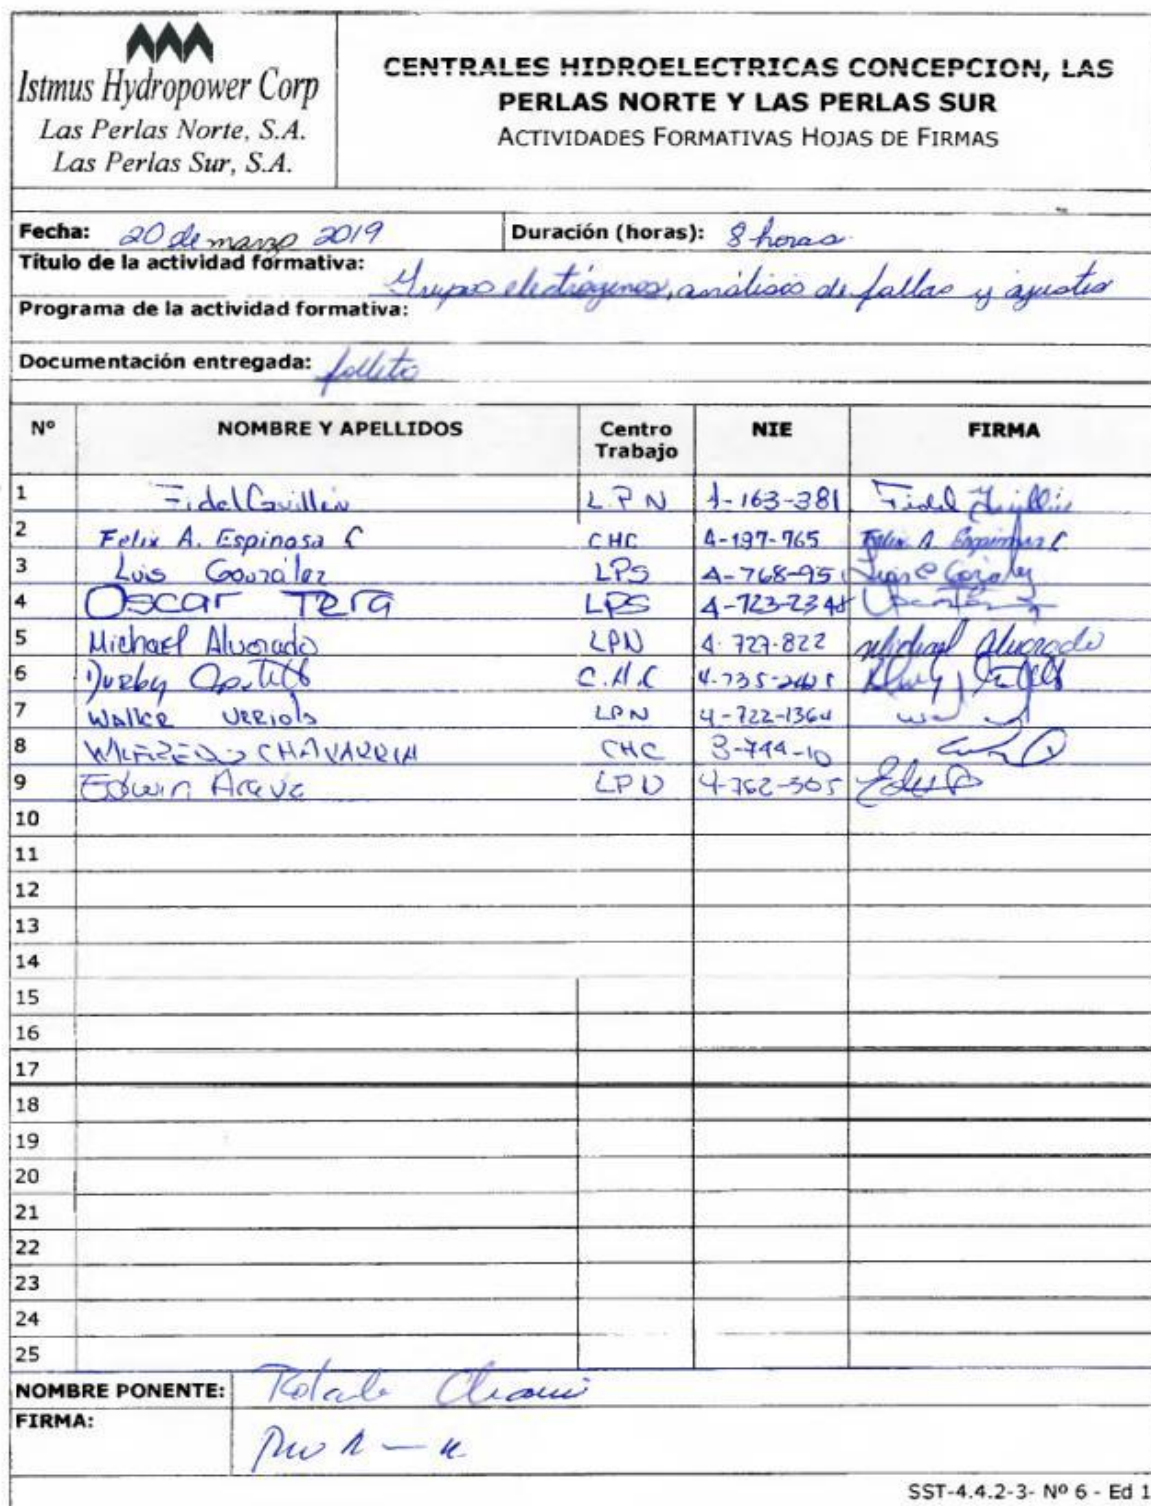 Istmus Hydropower Corp
Las Perlas Norte, S.A.
Las Perlas Sur, S.A.
CENTRALES HIDROELECTRICAS CONCEPCION, LAS
PERLAS NORTE Y LAS PERLAS SUR
ACTIVIDADES FORMATIVAS HOJAS DE FIRMAS
Fecha: 20 de marzo 2019 Duración (horas): 8 horas
Título de la actividad formativa: Grupos electrógenos, análisis de fallas y ajustes
Programa de la actividad formativa:
Documentación entregada: folleto
Nº NOMBRE Y APELLIDOS Centro Trabajo NIE FIRMA
1 Fidel Guillén L.P.N 4-163-381 Fidel Guillén
2 Felix A. Espinosa C CHC 4-197-765 Felix A. Espinosa C
3 Luis González LPS 4-768-95
4 Oscar LPS 4-723-2348
5 Michael Alvarado LPN 4-727-822 Michael Alvarado
6 C.H.C
7 LPN 4-722-1364
8 WILFREDO CHAVARRIA CHC 3-744-10
9 Edwin 4-762-505
10
11
12
13
14
15
16
17
18
19
20
21
22
23
24
25
NOMBRE PONENTE:
FIRMA:
SST-4.4.2-3- Nº 6 - Ed 1